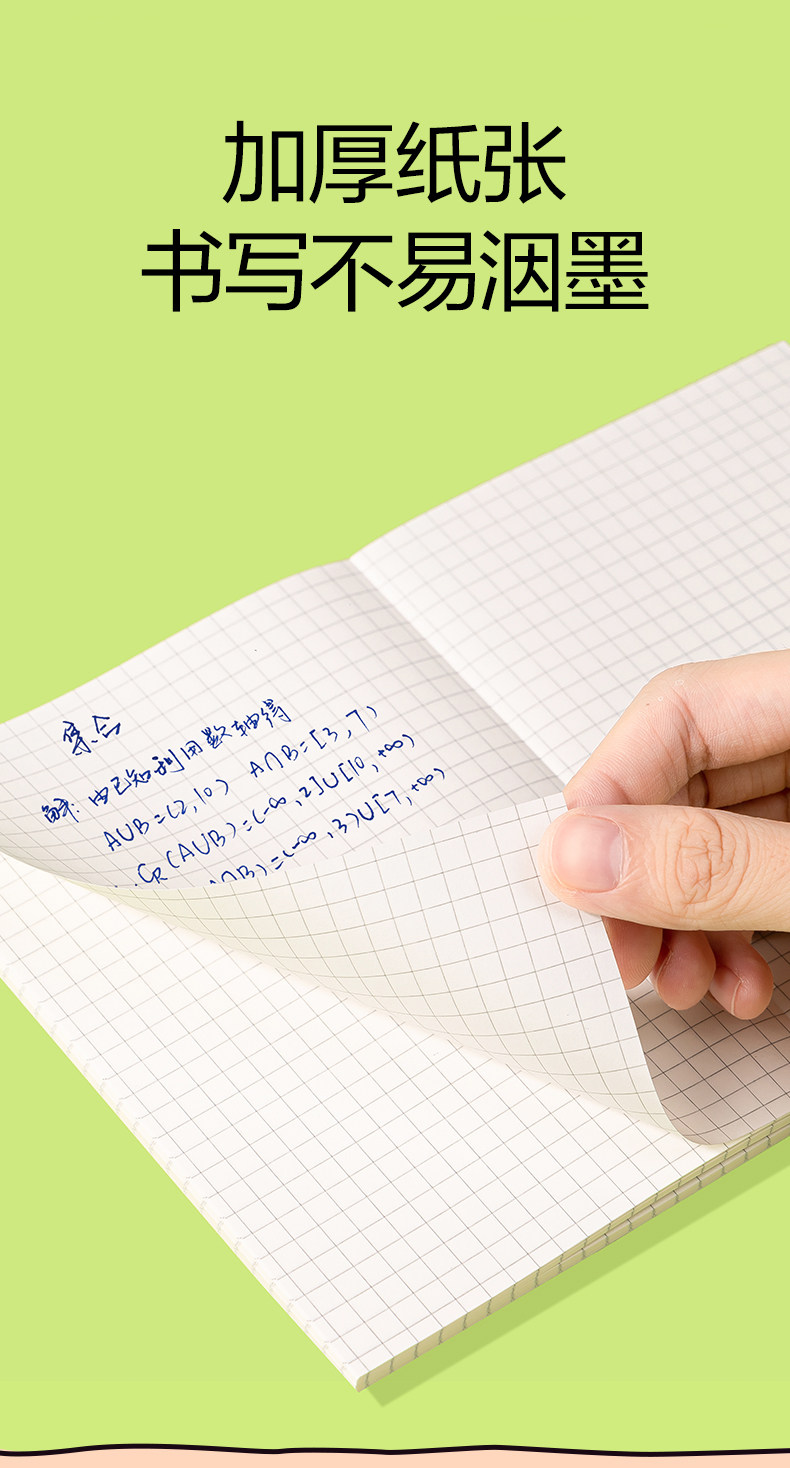 加厚纸张
书写不易洇墨
集合
解:由已知利用数轴得
A∪B=(2,10) A∩B=[3,7)
∴CR(A∪B)=(-∞,2]∪[10,+∞)
A∩B)=(-∞,3)∪[7,+∞)